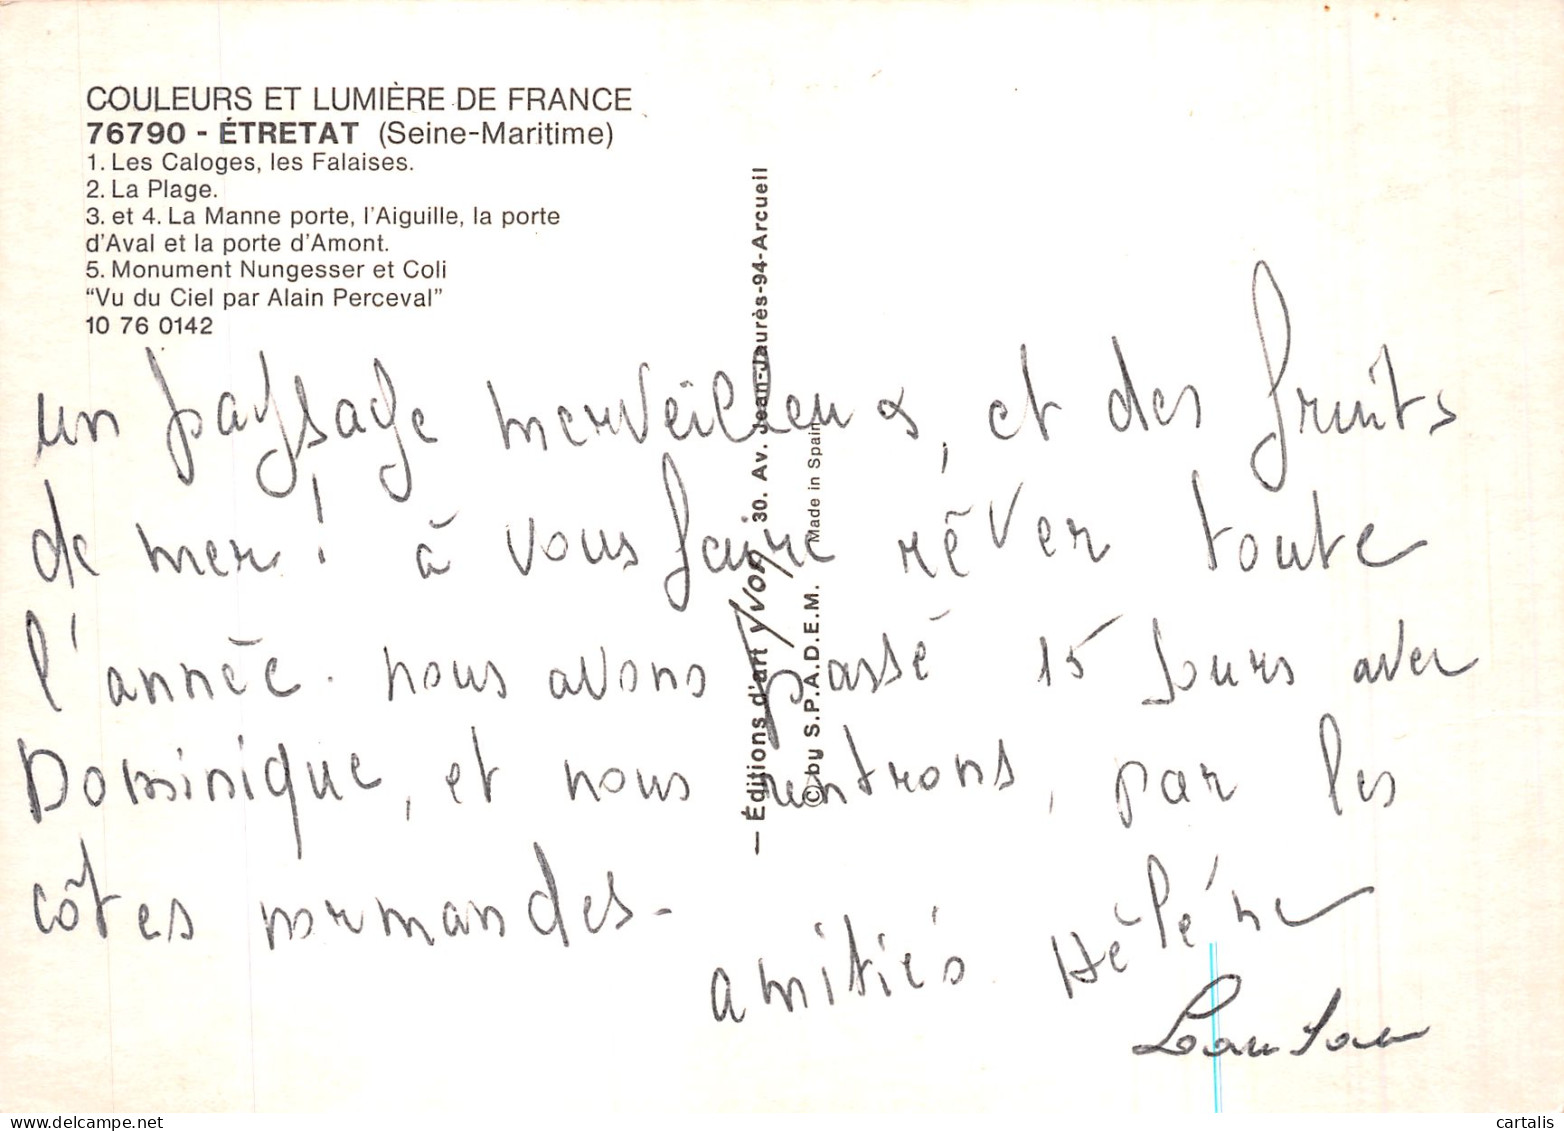 COULEURS ET LUMIÈRE DE FRANCE
76790 - ÉTRETAT (Seine-Maritime)
1. Les Caloges, les Falaises.
2. La Plage.
3. et 4. La Manne porte, l'Aiguille, la porte
d'Aval et la porte d'Amont.
5. Monument Nungesser et Coli
"Vu du Ciel par Alain Perceval"
10 76 0142
— Éditions d'art YVON, 30. Av. Jean-Jaurès-94-Arcueil
© by S.P.A.D.E.M. Made in Spain
un paysage merveilleux, et des fruits
de mer ! à vous faire rêver toute
l'année. nous avons passé 15 jours avec
Dominique, et nous rentrons, par les
côtes normandes.
amitiés Hélène
cartalis